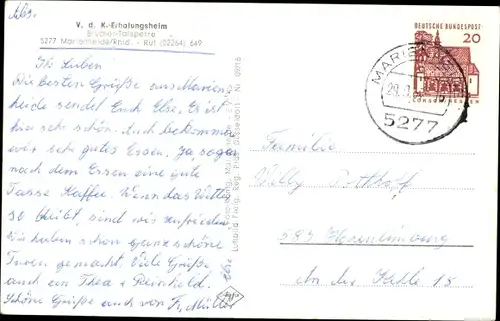 Abs.
V. d. K.-Erholungsheim
Brucher-Talsperre
5277 Marienheide/Rhld. - Ruf (02264) 649
Ihr Lieben!
Die besten Grüße aus Marien-
heide sendet Euch Else. Es ist
hier sehr schön. Auch bekommen
wir sehr gutes Essen. Ja, sogar
nach dem Essen eine gute
Tasse Kaffee. Wenn das Wetter
so bleibt, sind wir zufrieden.
Wir haben schon ganz schöne
Touren gemacht. Viele Grüße
auch an Thea + Reinhold.
Else
Schöne Grüße auch von Fr. Müller
DEUTSCHE BUNDESPOST
20
5277
Familie
Willy Potthoff
587
An der 18